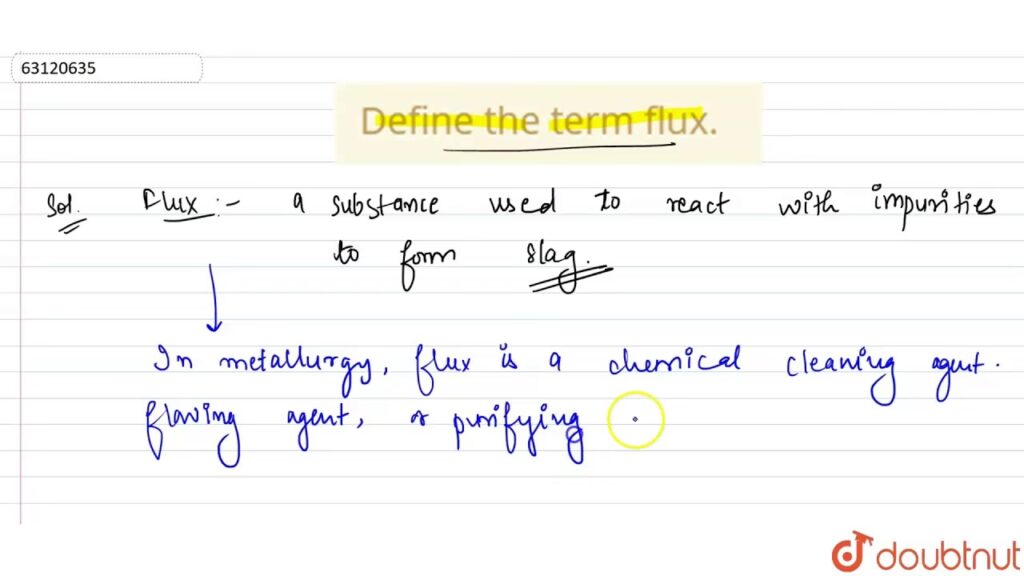 63120635
Define the term flux.
Sol. Flux :- a substance used to react with impurities
to form slag.
In metallurgy, flux is a chemical cleaning agent.
flowing agent, or purifying
doubtnut